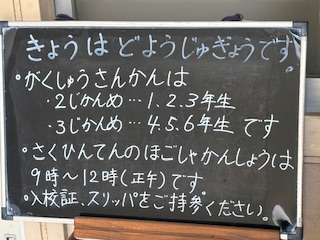 きょうはどようじゅぎょうです。
•がくしゅうさんかんは
・2じかんめ…1.2.3年生
・3じかんめ…4.5.6年生です
•さくひんてんのほごしゃかんしょうは
9時〜12時(正午)です。
•入校証、スリッパをご持参ください。